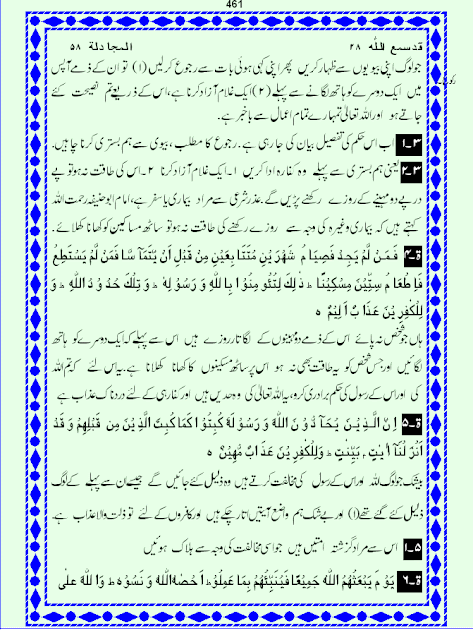 461
قدسمع الله ۲۸ المجادلة ۵۸
جو لوگ اپنی بیویوں سے ظہار کریں پھر اپنی کہی ہوئی بات سے رجوع کر لیں (۱) تو ان کے ذمے آپس
میں ایک دوسرے کو ہاتھ لگانے سے پہلے (۲) ایک غلام آزاد کرنا ہے، اس کے ذریعے تم نصیحت کئے
جاتے ہو اور اللہ تعالیٰ تمہارے تمام اعمال سے باخبر ہے۔
۳۔۱ اب اس حکم کی تفصیل بیان کی جا رہی ہے۔ رجوع کا مطلب، بیوی سے ہم بستری کرنا چاہیں۔
۳۔۲ یعنی ہم بستری سے پہلے وہ کفارہ ادا کریں ۱۔ ایک غلام آزاد کرنا ۲۔ اس کی طاقت نہ ہو تو پے
درپے دو مہینے کے روزے رکھنے پڑیں گے۔ عذر شرعی سے مراد بیماری یا سفر ہے، امام ابوحنیفہ رحمت اللہ
کہتے ہیں کہ بیماری وغیرہ کی وجہ سے روزے رکھنے کی طاقت نہ ہو تو ساٹھ مساکین کو کھانا کھلائے۔
ۃ۔۴ فَمَنْ لَّمْ يَجِدْ فَصِيَامُ شَهْرَيْنِ مُتَتَابِعَيْنِ مِنْ قَبْلِ أَنْ يَتَمَآسَّا فَمَنْ لَّمْ يَسْتَطِعْ
فَإِطْعَامُ سِتِّيْنَ مِسْكِيْنًا ط ذٰلِكَ لِتُؤْمِنُوْا بِاللّٰهِ وَرَسُوْلِهٖ ط وَتِلْكَ حُدُوْدُ اللّٰهِ ط وَ
لِلْكٰفِرِيْنَ عَذَابٌ أَلِيْمٌ ہ
ہاں جو شخص نہ پائے اس کے ذمے دو مہینوں کے لگاتار روزے ہیں اس سے پہلے کہ ایک دوسرے کو ہاتھ
لگائیں اور جس شخص کو یہ طاقت بھی نہ ہو اس پر ساٹھ مسکینوں کا کھانا کھلانا ہے۔ یہ اس لئے کہ تم اللہ
کی اور اس کے رسول کی حکم برداری کرو، یہ اللہ تعالیٰ کی وہ حدیں ہیں اور کفار ہی کے لئے دردناک عذاب ہے
ۃ۔۵ اِنَّ الَّذِيْنَ يُحَآدُّوْنَ اللّٰهَ وَرَسُوْلَهٗ كُبِتُوْا كَمَا كُبِتَ الَّذِيْنَ مِنْ قَبْلِهِمْ وَقَدْ
اَنْزَلْنَآ اٰيٰتٍ بَيِّنٰتٍ ط وَلِلْكٰفِرِيْنَ عَذَابٌ مُّهِيْنٌ ہ
بیشک جو لوگ اللہ اور اس کے رسول کی مخالفت کرتے ہیں وہ ذلیل کئے جائیں گے جیسے ان سے پہلے کے لوگ
ذلیل کئے گئے تھے (۱) اور بےشک ہم واضح آیتیں اتار چکے ہیں اور کافروں کے لئے تو ذلت والا عذاب ہے۔
۵۔۱ اس سے مراد گزشتہ امتیں ہیں جو اسی مخالفت کی وجہ سے ہلاک ہوئیں
ۃ۔۶ يَوْمَ يَبْعَثُهُمُ اللّٰهُ جَمِيْعًا فَيُنَبِّئُهُمْ بِمَا عَمِلُوْا ط اَحْصٰهُ اللّٰهُ وَنَسُوْهُ ط وَاللّٰهُ عَلٰى